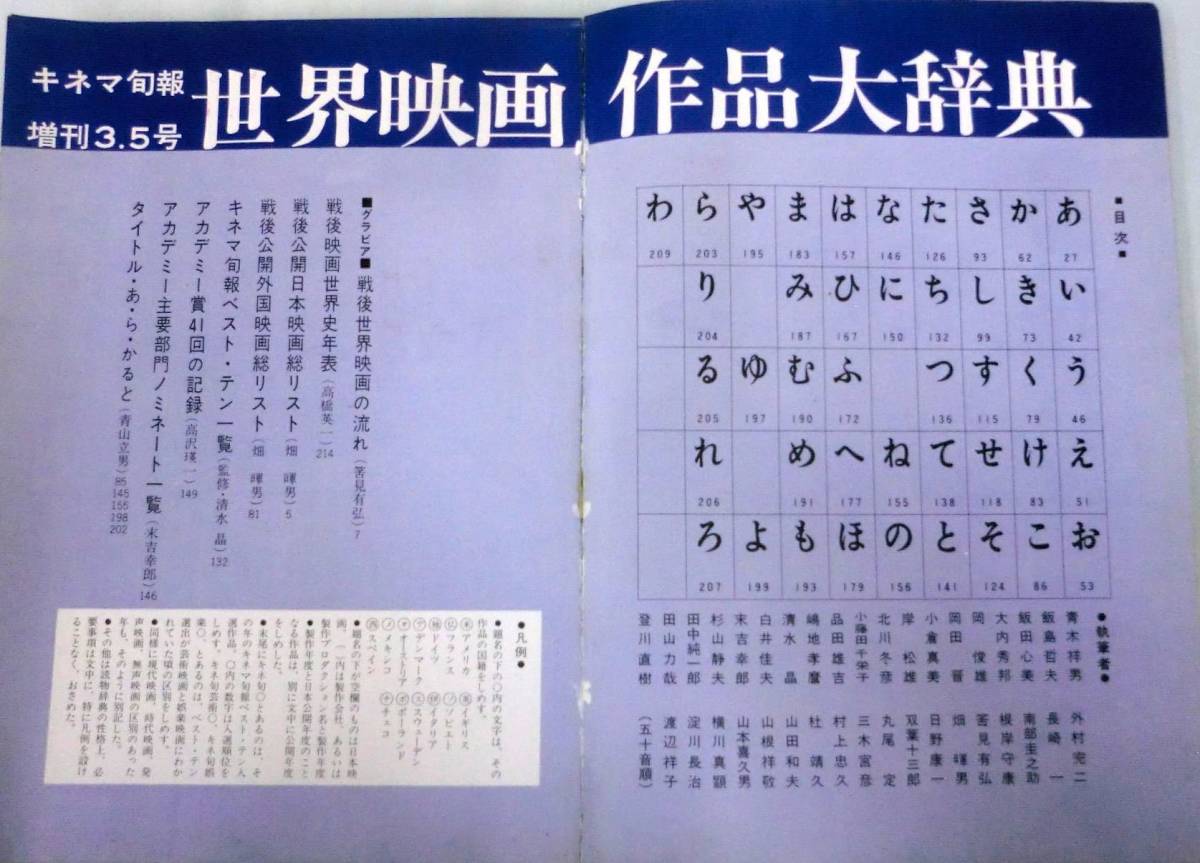 キネマ旬報
増刊3.5号
世界映画作品大辞典
■目次■
あ 27
い 42
う 46
え 51
お 53
か 62
き 73
く 79
け 83
こ 86
さ 93
し 99
す 115
せ 118
そ 124
た 126
ち 132
つ 136
て 138
と 141
な 146
に 150
ね 155
の 156
は 157
ひ 167
ふ 172
へ 177
ほ 179
ま 183
み 187
む 190
め 191
も 193
や 195
ゆ 197
よ 199
ら 203
り 204
る 205
れ 206
ろ 207
わ 209
●執筆者●
青木祥男
飯島哲夫
飯田心美
大内秀邦
岡 俊雄
岡田 晋
小倉真美
岸 松雄
北川冬彦
小藤田千栄子
品田雄吉
嶋地孝麿
清水 晶
白井佳夫
末吉幸郎
杉山静夫
田中純一郎
田山力哉
登川直樹
外村完二
長崎 一
南部圭之助
根岸守康
筈見有弘
畑 暉男
日野康一
双葉十三郎
丸尾 定
三木宮彦
村上忠久
杜 靖久
山田和夫
山根祥敬
山本喜久男
横川真顕
淀川長治
渡辺祥子
(五十音順)
■グラビア■ 戦後世界映画の流れ(筈見有弘)7
戦後映画世界史年表(高橋英一)214
戦後公開日本映画総リスト(畑 暉男)5
戦後公開外国映画総リスト(畑 暉男)81
キネマ旬報ベスト・テン一覧(監修・清水 晶)132
アカデミー賞41回の記録(高沢瑛一)149
アカデミー主要部門ノミネート一覧(末吉幸郎)146
タイトル・あ・ら・かると(青山立男)85 145 155 198 202
●凡例●
●題名の下の〇内の文字は、その
作品の国籍をしめす。
㋱アメリカ
フランス
ドイツ
デンマーク
オーストリア
メキシコ
スペイン
イギリス
ソビエト
イタリア
スウェーデン
ポーランド
チェコ
●題名の下が空欄のものは日本映
画で、( )内は製作会社、あるいは
製作プロダクション名と製作年度
●製作年度と日本公開年度のこと
なる作品は、別に文中に公開年度
をしめした。
●末尾にキネ旬〇とあるのは、そ
の年のキネマ旬報ベスト・テン入
選作品。〇内の数字は入選順位を
しめす。キネ旬芸術〇、キネ旬娯
楽〇、とあるのは、ベスト・テン
選出が芸術映画と娯楽映画にわか
れていた頃の区別をしめす。
●同様に現代映画、時代映画、発
声映画、無声映画の区別のあった
年も、そのように別記した。
●その他は読物辞典の性格上、必
要事項は文中に、特に凡例を設け
ることなく、おさめた。